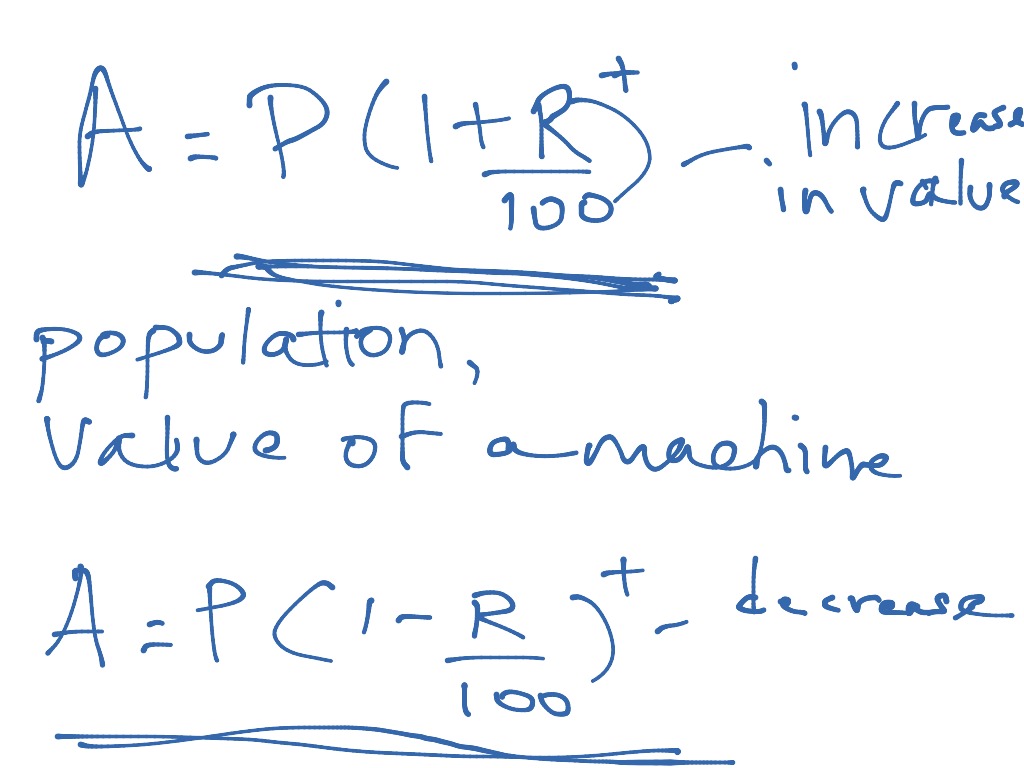 A = P(1+R/100)^t — increase
in value
population,
value of a machine
A = P(1-R/100)^t - decrease